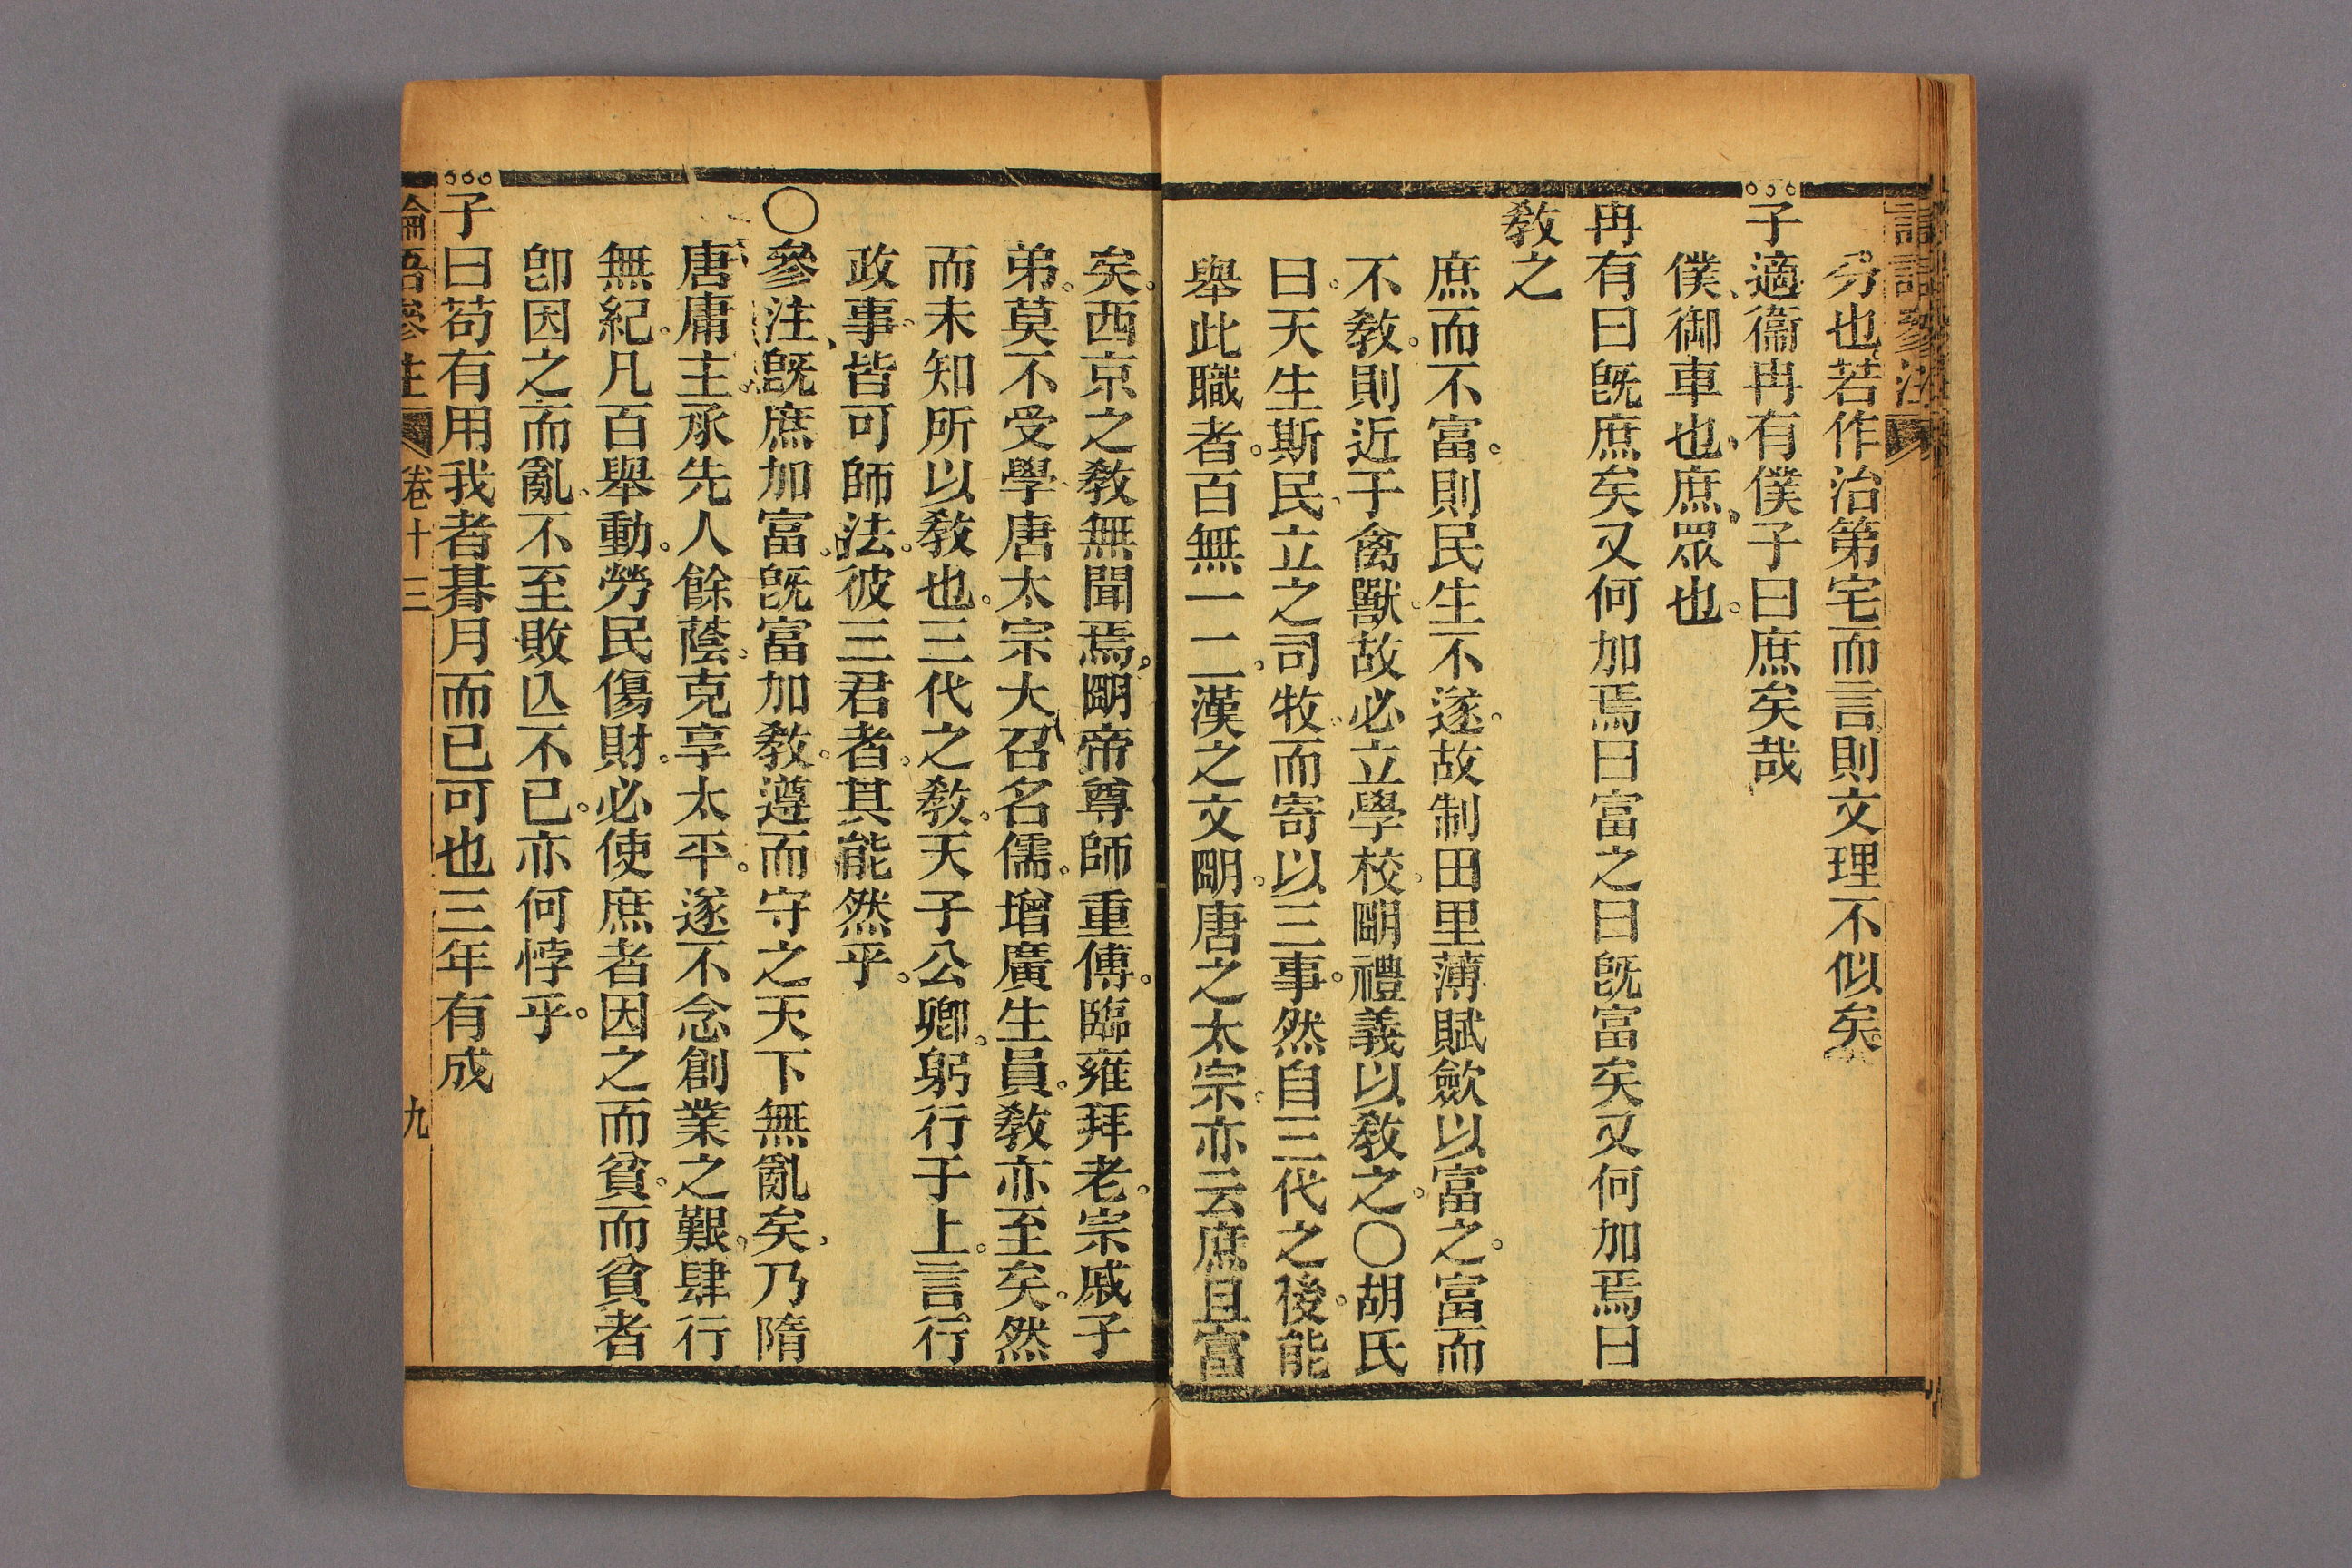 分也若作治第宅而言則文理不似矣
子適衞冉有僕子曰庶矣哉
僕御車也庶眾也
冉有曰旣庶矣又何加焉曰富之曰旣富矣又何加焉曰
敎之
庶而不富則民生不遂故制田里薄賦歛以富之富而
不敎則近于禽獸故必立學校明禮義以敎之〇胡氏
曰天生斯民立之司牧而寄以三事然自三代之後能
舉此職者百無一二漢之文明唐之太宗亦云庶且富
矣西京之敎無聞焉明帝尊師重傅臨雍拜老宗戚子
弟莫不受學唐太宗大召名儒增廣生員敎亦至矣然
而未知所以敎也三代之敎天子公卿躬行于上言行
政事皆可師法彼三君者其能然乎
〇參注旣庶加富旣富加敎遵而守之天下無亂矣乃隋
唐庸主承先人餘蔭克享太平遂不念創業之艱肆行
無紀凡百舉動勞民傷財必使庶者因之而貧而貧者
卽因之而亂不至敗亾不已亦何悖乎
子曰苟有用我者朞月而已可也三年有成
論語參注 卷十三 九